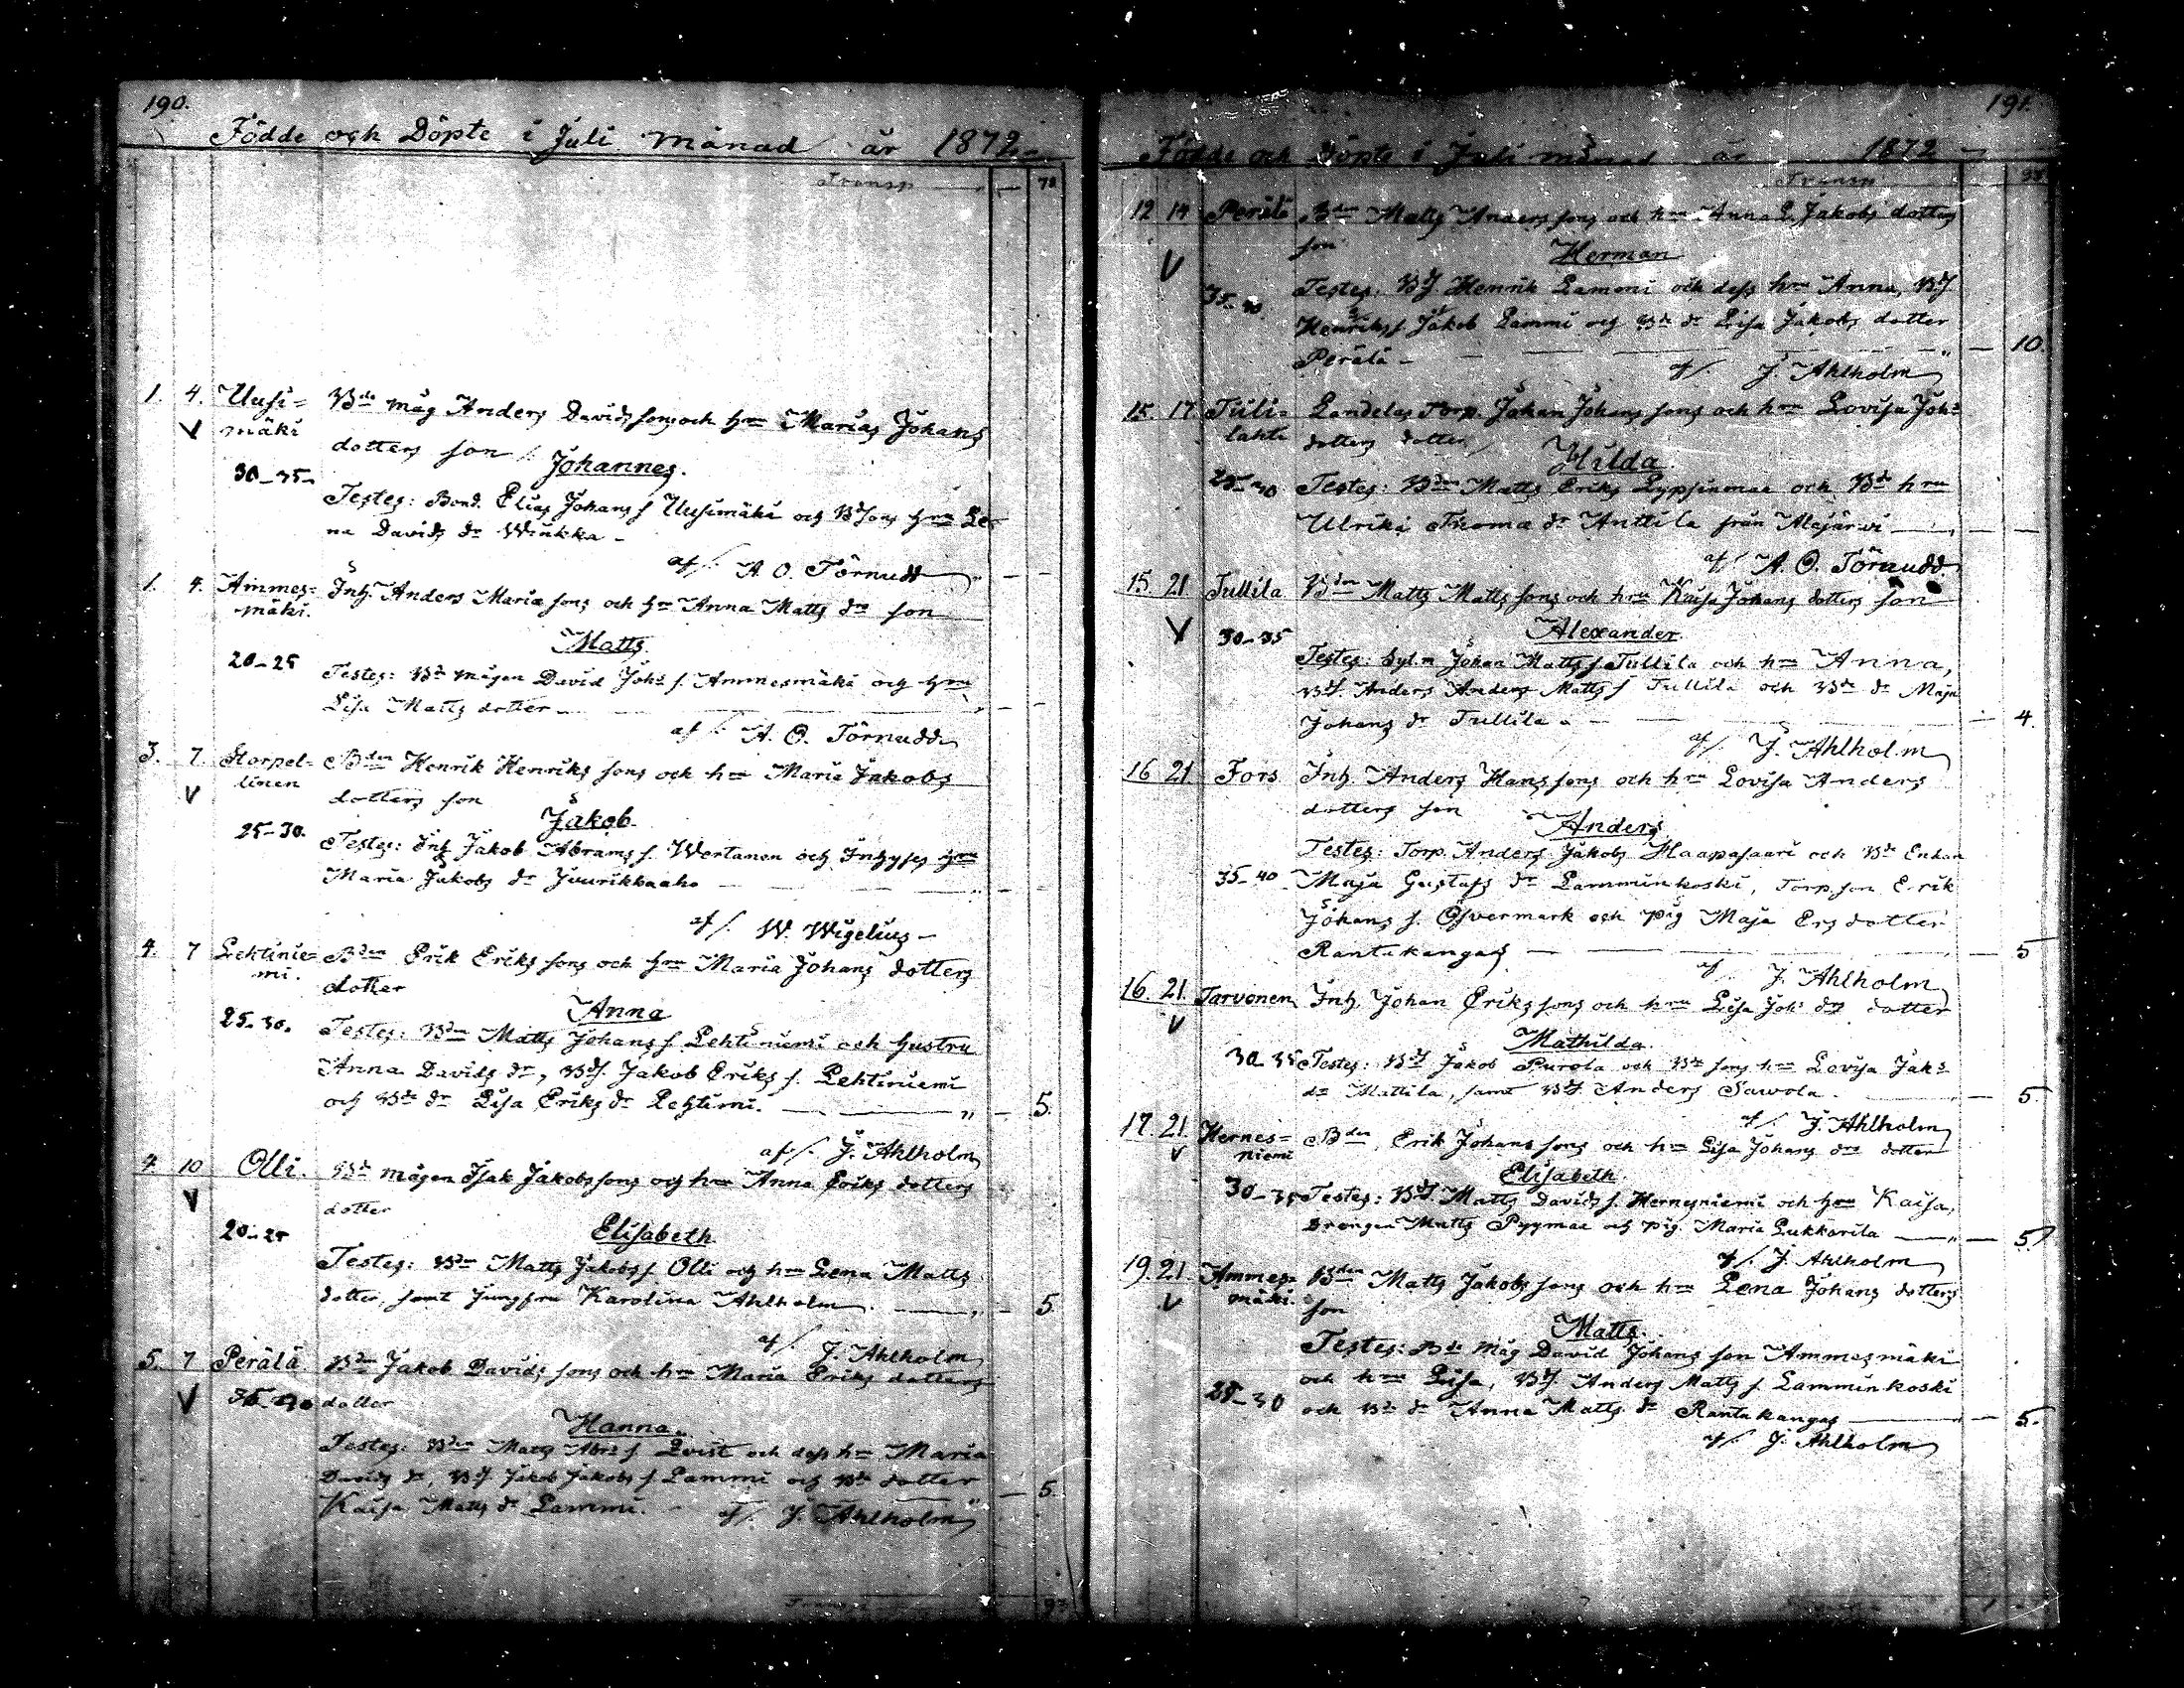 190.
Födde och Döpte i Juli månad år 1872
Transp 78
1. 4. Uusi= Bde måg Anders Davids sons och hru Marias Johans
mäki dotters son
Johannes.
30-35-
Testes: Bond. Elias Johans s Uusimäki och Bdsons hru Le-
na Davids dr Winkka -
af/. A. O. Törnudd
1. 4. Ammes= Inh. Anders Maria sons och hru Anna Matts drs son
mäki.
Matts
20-25
Testes: Bde mågen David Johs s. Ammesmäki och hru
Lisa Matts dotter
af/. A. O. Törnudd
3. 7. Horpel= Bden Henrik Henriks sons och hru Maria Jakobs
linen dotters son
Jakob
25-30.
Testes: Inh Jakob Abrams s. Wertanen och Inhyses hru
Maria Jakobs dr Juurikkaaho
af/. W. Wigelius
4. 7 Lehtinie= Bden Erik Eriks sons och hru Maria Johans dotters
mi. dotter
Anna
25-30.
Testes: Bden Matts Johans s Lehtiniemi och hustru
Anna Davids dr, BdS. Jakob Eriks s. Lehtiniemi
och Bde dr Lisa Eriks dr Lehtimi. 5.
af/. J. Ahlholm
4. 10 Olli. Bde mågen Isak Jakobs sons och hru Anna Eriks dotters
dotter
Elisabeth
20-25
Testes: Bden Matts Jakobs s Olli och hru Lena Matts
dotter, samt Jungfru Karolina Ahlholm. 5.
af/. J. Ahlholm
5. 7 Perälä Bden Jakob Davids sons och hru Maria Eriks dotters
35-40 dotter
Hanna.
Testes: Bden Matts Abrs s Qvist och dess hru Maria
Davids dr, BdS Jakob Jakobs s Lammi och Bde dotter
Kaisa Matts dr Lammi. 5.
af/. J. Ahlholm
Transp
191.
Födde och Döpte i Juli månad år 1872
Transp
12 14 Perälä Bden Matts Anders sons och hru Anna L. Jakobs dotters
son
Herman
35-40.
Testes: BdS Henrik Lammi och dess hru Anna, BdS
Henriks s. Jakob Lammi och Bde dr Lisa Jakobs dotter
Perälä - 10.
af/. J. Ahlholm
15. 17 Tüli= Landelas Torp. Johan Johans sons och hru Lovisa Johs
lahti dotters dotter
Hilda
25-30
Testes: Bden Matts Eriks Lypsinmaa och Bde hru
Ulrika Thoma dr Anttila från Alajärvi
af/ A. O. Törnudd
15. 21 Tullila Bden Matts Matts sons och hru Kaisa Johans dotters son
Alexander.
30-35
Testes: Sytn Johan Matts s Tullila och hru Anna,
BdS. Anders Anders Matts s Tullila och Bde dr Maja
Johans dr Tullila 4.
af/. J. Ahlholm
16 21 Fors Inh. Anders Hans sons och hru Lovisa Anders
dotters son
Anders
Testes: Torp. Anders Jakobs Haapasaari och Bde Enkan
35-40 Maja Gustafs dr Lamminkoski, Torp. son Erik
Johans s. Ofvermark och pig Maja Ers dotter
Rantakangas 5
af J. Ahlholm
16. 21. Tarvonen Inh. Johan Eriks sons och hru Lisa Johs drs dotter
Mathilda
30-35 Testes: BdS Jakob Purola och Bde sons hru Lovisa Jaks
dr Mattila, samt BdS Anders Sawola. 5.
af/. J. Ahlholm
17. 21. Hernes= Bden Erik Johans sons och hru Lisa Johans drs dotter
niemi
Elisabeth.
30-35 Testes: BdS. Matts Davids s. Hernesniemi och hru Kaisa,
Drengen Matts Pyymaa och pig. Maria Lukkarila 5
af/. J. Ahlholm
19. 21. Ammes= Bden Matts Jakobs sons och hru Lena Johans dotters
mäki. son
Matts.
Testes: Bde måg David Johans son Ammesmäki
och hru Lisa, BdS Anders Matts s Lamminkoski
25-30 och Bde dr Anna Matts dr Rantakangas 5.
af/. J. Ahlholm